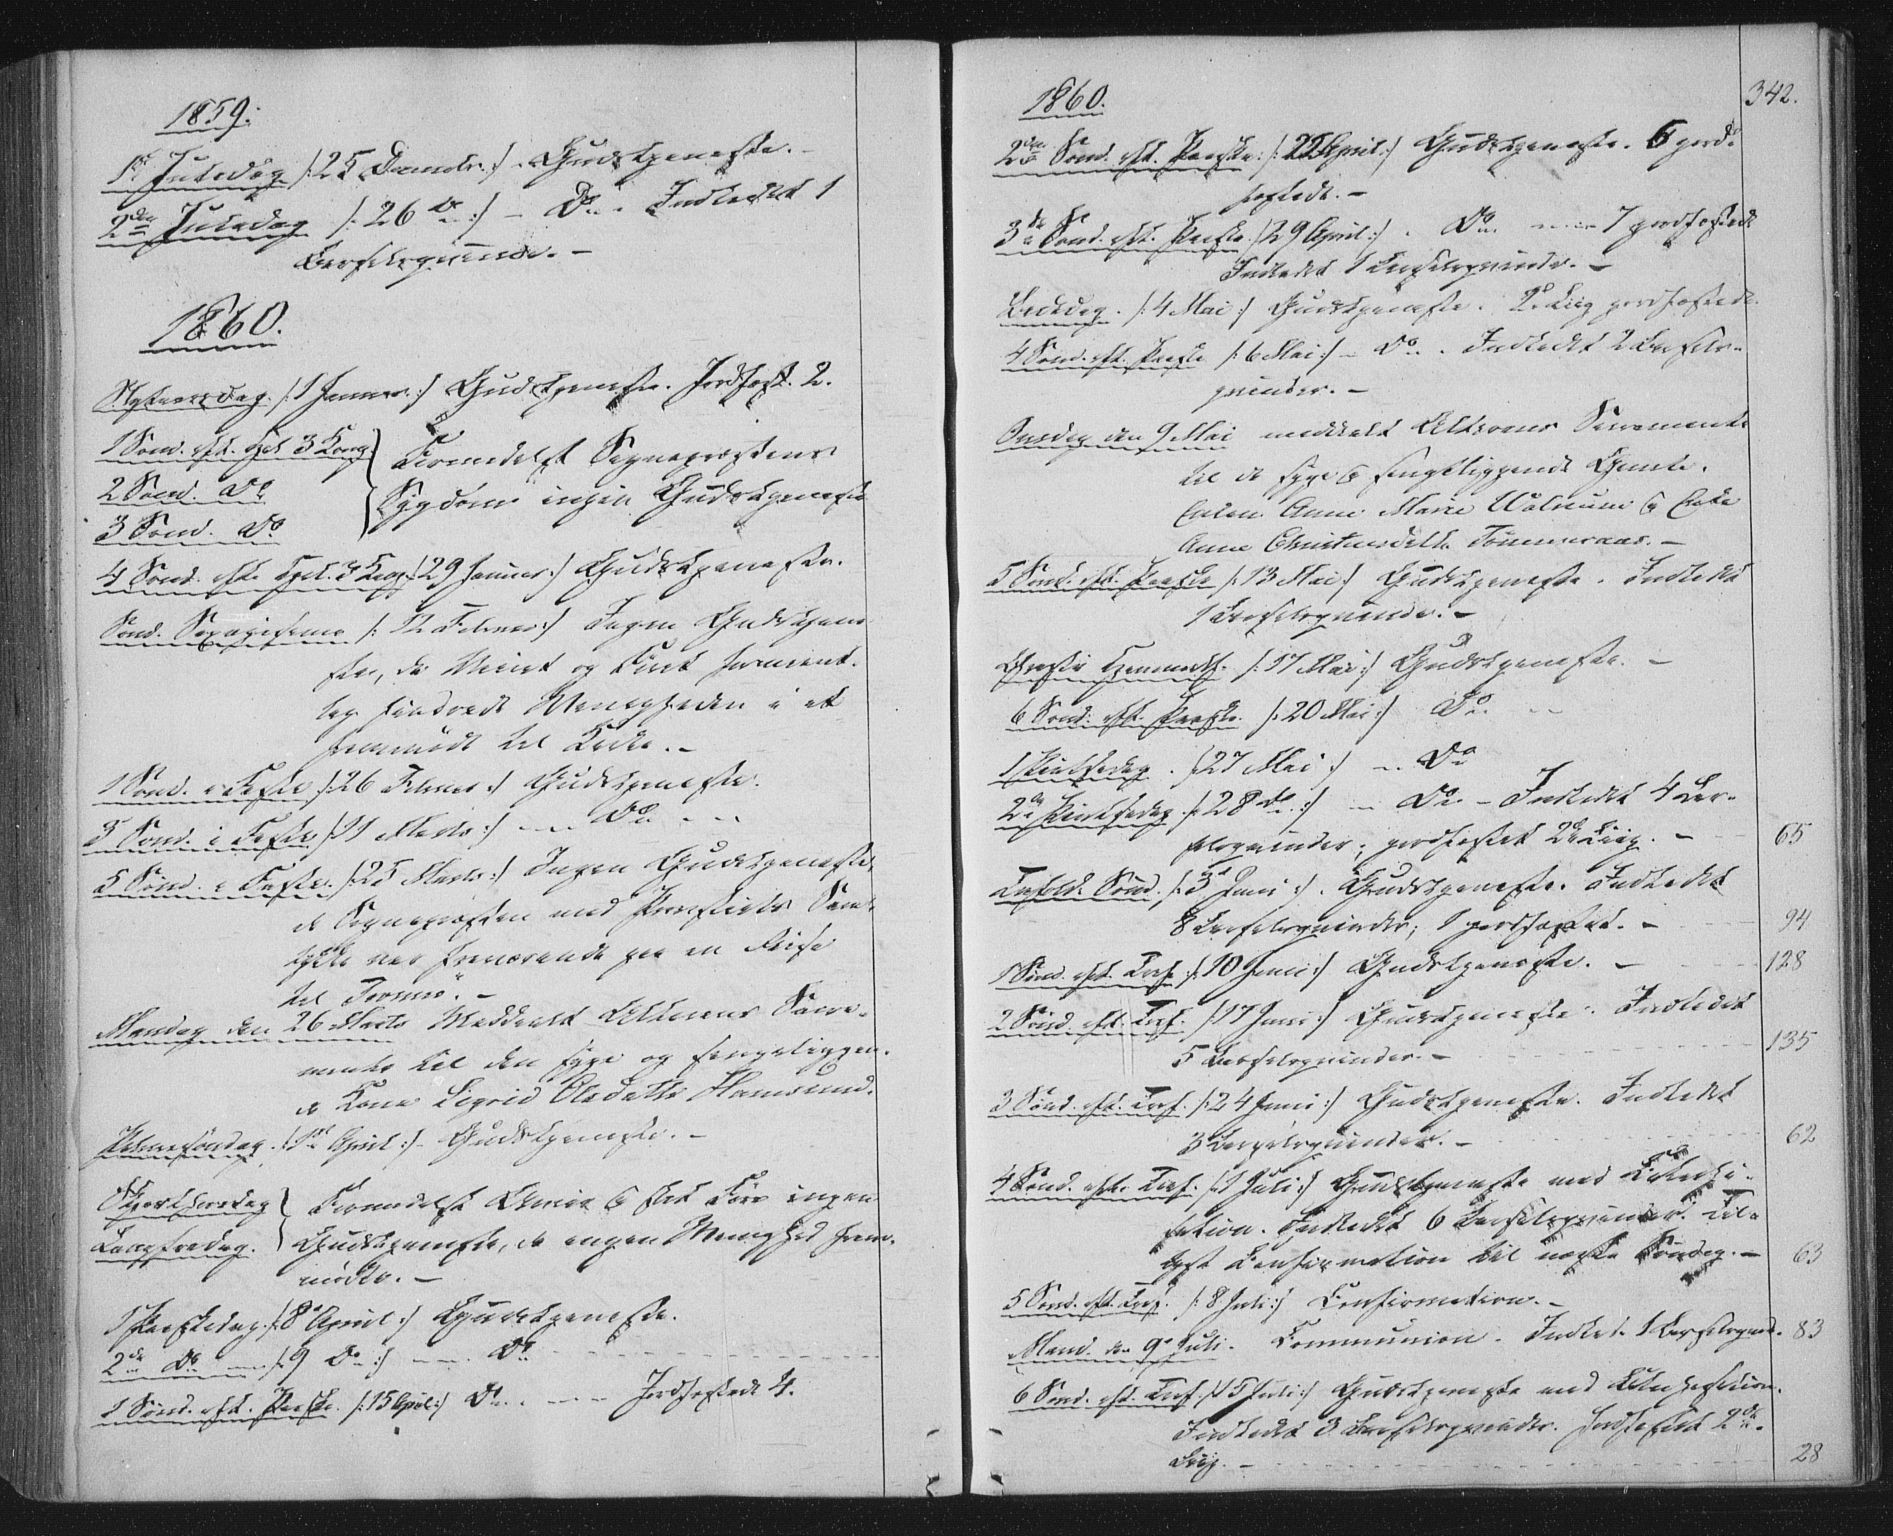 1859.
1ste Juledag /: 25 Decembr. :/ . Gudstjeneste. –
2den Juledag /: 26 do :/ – Do – Indledet 1
Barselqvinde. –
1860.
Nytaarsdag. /: 1 Januar. :/ Gudstjeneste. Jordfæst. 2.
1 Sønd. eft. Hel. 3 Kong.
2 Sønd. Do
3 Sønd. Do
Formedelst Sognepræstens
Sygdom ingen Gudstjeneste
4 Sønd. eft. Hel. 3 Kong. /: 29 Januar :/ Gudstjeneste.
Sønd. Sexagesima /: 12 Februar :/ Ingen Gudstjene
ste, da Veiret og Föret forment-
lig hindrede Menigheden i at
fremmöde til Kirke. –
1 Sønd. i Faste /: 26 Februar :/ Gudstjeneste.
3 Sønd. i Faste /: 11 Marts :/ – Do –
5 Sønd. i Faste. /: 25 Marts :/ Ingen Gudstjeneste,
da Sognepræsten med Provstiets Sam-
tykke var fraværende paa en Reise
til Tromsö. –
Mandag den 26 Marts Meddeelt Alterens Sacra-
mente til den syge og sengeliggen-
de Kone Sigrid Olsdatter Hamsund.
Palmesöndag. /: 1ste April :/ – Gudstjeneste. –
Skjærthorsdag
Langfredag.
Formedelst Veiret og slet Före ingen
Gudstjeneste, da ingen Menighed frem-
mödte. –
1 Paaskedag. /: 8 April :/ Gudstjeneste.
2den Do – /: 9 Do :/ – – Do
1 Sønd. eft. Paaske. /: 15 April :/ Do. – – Jordfæstede 4.
1860.
342.
2den Sønd. eft. Paaske. /: 22 April :/ Gudstjeneste. 6 jord-
fæstede. –
3die Sønd. eft. Paaske. /: 29 April :/ . Do. – 7 jordfæstede
Indledet 1 Barselqvinde. –
Bededag. /: 4 Mai :/ Gudstjeneste. 2de Liig jordfæstede.
4 Sønd. eft. Paaske /: 6 Mai :/ – Do. . Indledet 2 Barsel-
qvinder. –
Onsdag den 9 Mai meddeelt Alterens Sacramente
til de syge og sengeliggende Gamle.
Enken Anne Marie Valnum og Enke
Anne Christensdatt. Tömmeraas. –
5 Sønd. eft. Paaske /: 13 Mai :/ Gudstjeneste. Indledet
1 Barselqvinde. –
Christi Himmelf. /: 17 Mai :/ Gudstjeneste. –
6 Sønd. eft. Paaske. /: 20 Mai :/ Do. –
1 Pintsedag. /: 27 Mai :/ – Do
2den Pintsedag /: 28 do. :/ – Do. – Indledet 4 Bar-
selqvinder; jordfæstet 2de Liig. – 65
Trefold. Sønd. /: 3 Juni :/ . Gudstjeneste. Indledet
8 Barselqvinder; 1 jordfæstet. – 94
1 Sønd. eft. Tref. /: 10 Juni :/ Gudstjeneste. – 128
2 Sønd. eft. Tref. /: 17 Juni :/ Gudstjeneste. Indledet
5 Barselqvinder. – 135
3 Sønd. eft. Tref. /: 24 Juni :/ Gudstjeneste. Indledet
3 Barselqvinder. – 62
4 Sønd. eft. Tref. /: 1 Juli :/ Gudstjeneste med Catechi-
sation. Indledet 6 Barselqvinder. Til-
lyst Confirmation til næste Söndag. – 63
5 Sønd. eft. Tref. /: 8 Juli :/ Confirmation. –
Mand. den 9 Juli. Communion. Indled. 1 Barselqvind. 83
6 Sønd. eft. Tref. /: 15 Juli :/ Gudstjeneste med Catechisation.
Indledet 3 Barselqvinder. Jordfæstet 2de
Liig. – 28